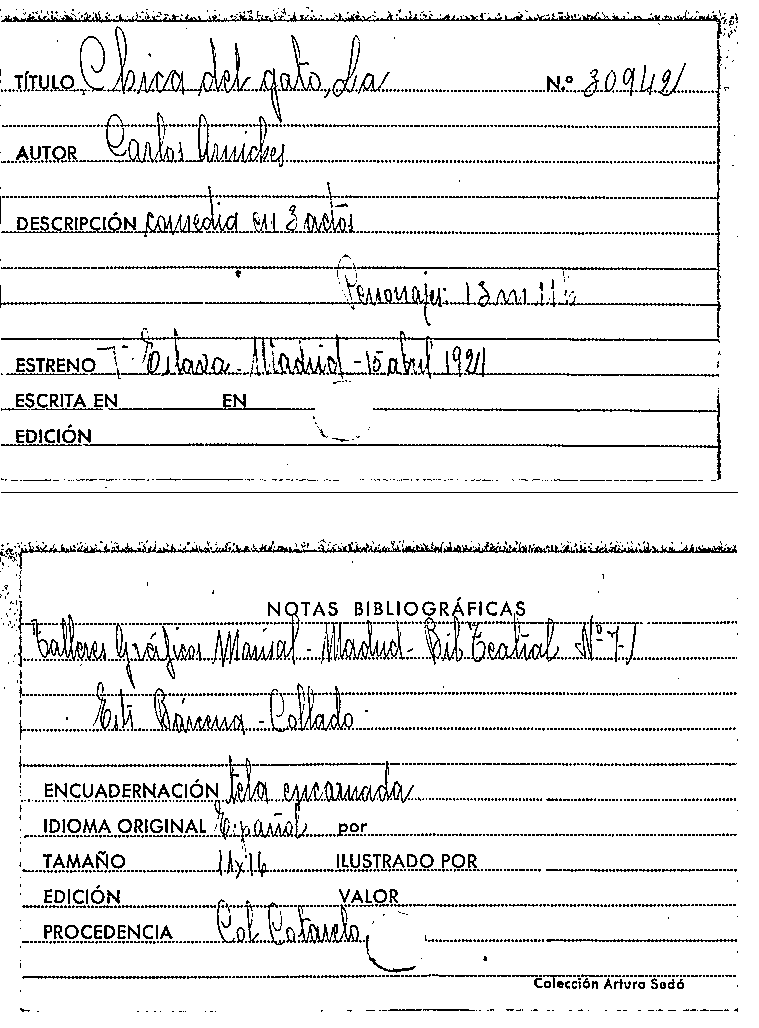 TÍTULO Chica del gato, La N.º 30942
AUTOR Carlos Arniches
DESCRIPCIÓN comedia en 3 actos
Personajes: 13 m 11 h
ESTRENO T. Eslava - Madrid - 15 abril 1921
ESCRITA EN EN
EDICIÓN
NOTAS BIBLIOGRÁFICAS
Talleres Gráficos - Madrid - Bib Teatral Nº 7
Est Bárcena - Collado
ENCUADERNACIÓN tela encarnada
IDIOMA ORIGINAL Español por
TAMAÑO 11x16 ILUSTRADO POR
EDICIÓN VALOR
PROCEDENCIA Col Cotarelo
Colección Arturo Sedó